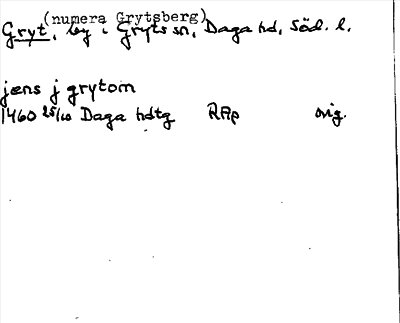 (numera Grytsberg)
Gryt, by i Gryts sn, Daga hd, Söd. l.
jæns j grytom
1460 25/10 Daga hdtg RAp orig.